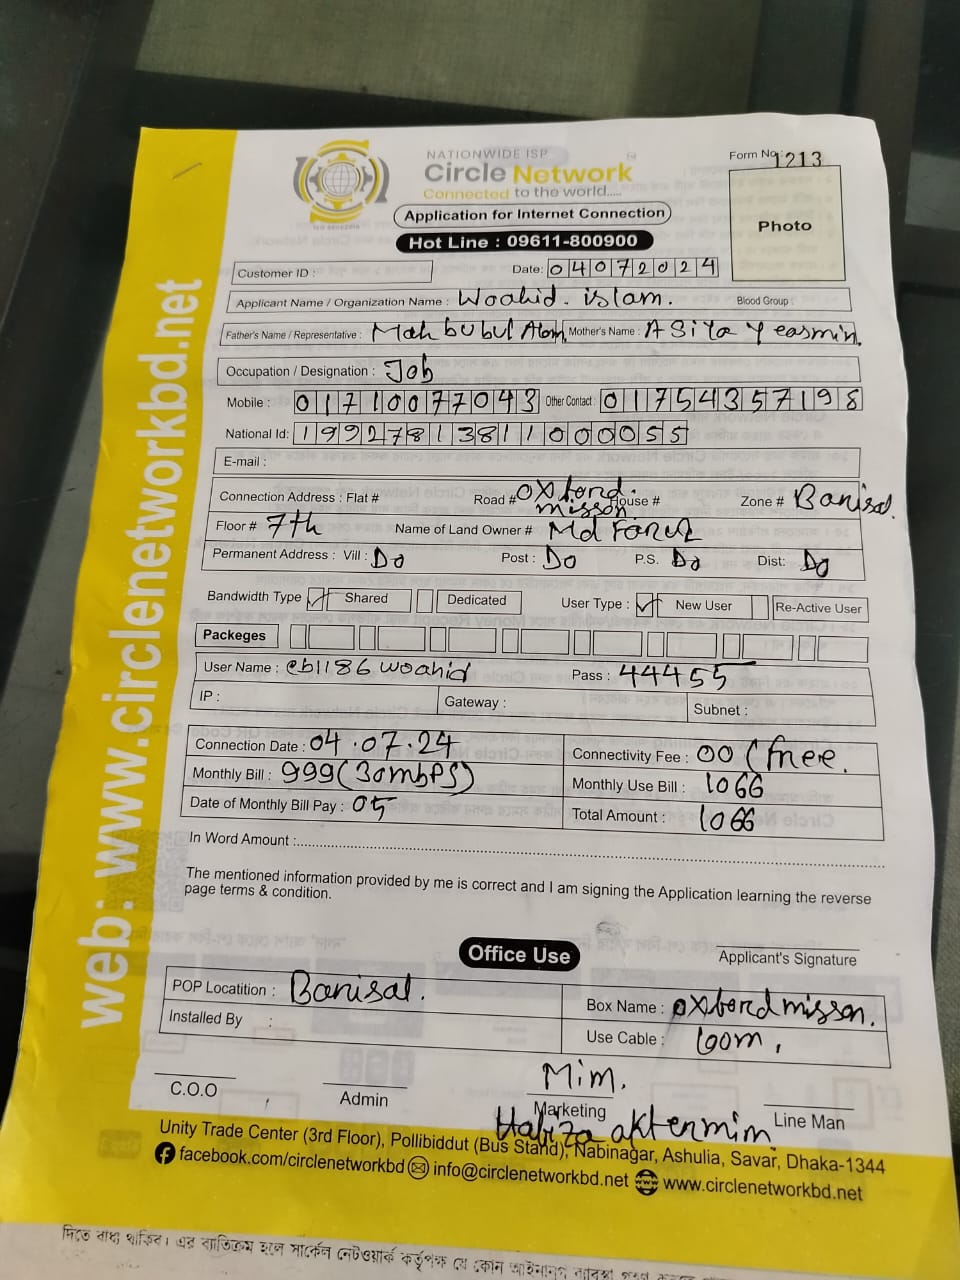 NATIONWIDE ISP
Circle Network
Connected to the world.....
Form No: 1213
Photo
Application for Internet Connection
Hot Line : 09611-800900
Customer ID :
Date: 04072024
Applicant Name / Organization Name : Woahid. islam. Blood Group :
Father's Name / Representative : Mahbubul Alom, Mother's Name : ASiya Yeasmin.
Occupation / Designation : Job
Mobile : 01710077043 Other Contact : 01754357198
National Id: 19927813811000055
E-mail :
Connection Address : Flat # Road # oxford. misson House # Zone # Barisal.
Floor # 7th Name of Land Owner # Md Faruk
Permanent Address : Vill : Do Post : Do P.S. Do Dist: Do
Bandwidth Type Shared Dedicated User Type : New User Re-Active User
Packeges
User Name : cb1186woahid Pass : 44455
IP : Gateway : Subnet :
Connection Date : 04.07.24 Connectivity Fee : 00 (free.
Monthly Bill : 999(30mbPS) Monthly Use Bill : 1066
Date of Monthly Bill Pay : 05 Total Amount : 1066
In Word Amount :
The mentioned information provided by me is correct and I am signing the Application learning the reverse
page terms & condition.
Office Use
Applicant's Signature
POP Locatition : Barisal. Box Name : oxford misson.
Installed By : Use Cable : 100m,
Mim.
C.O.O Admin Marketing Line Man
Habiza aktermim
Unity Trade Center (3rd Floor), Pollibiddut (Bus Stand), Nabinagar, Ashulia, Savar, Dhaka-1344
facebook.com/circlenetworkbd info@circlenetworkbd.net www.circlenetworkbd.net
web: www.circlenetworkbd.net
দিতে বাধ্য থাকিব। এর ব্যতিক্রম হলে সার্কেল নেটওয়ার্ক কর্তৃপক্ষ যে কোন আইনানুগ ব্যবস্থা